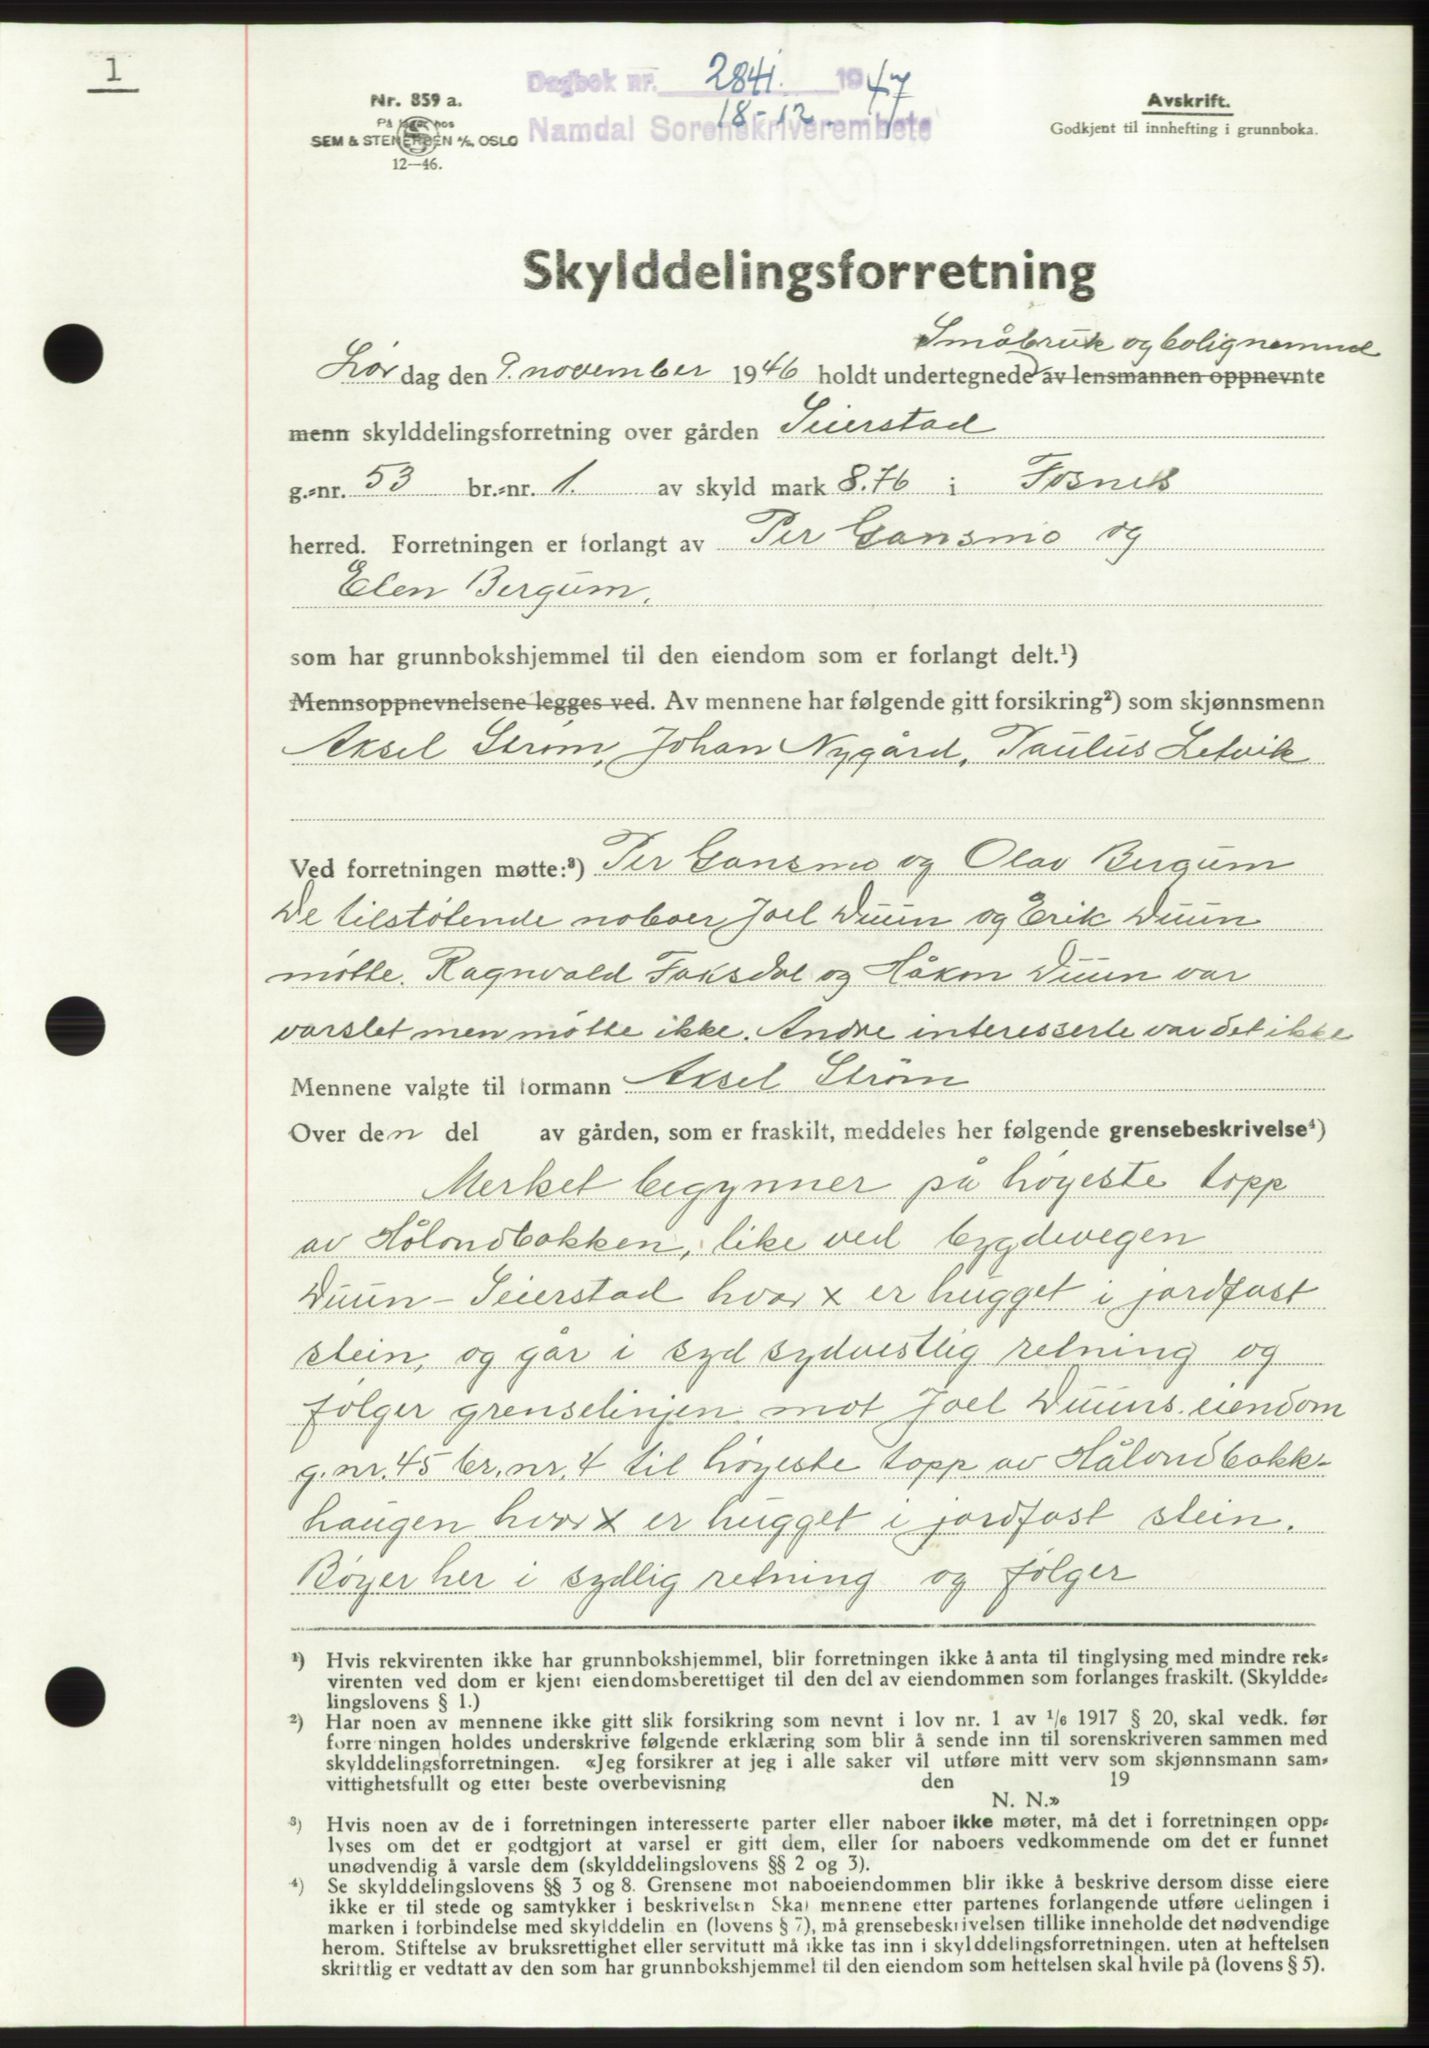 1
Nr. 859 a.
På lager hos
SEM & STENERSEN A/S, OSLO
12—46.
Dagbok nr. 2841. 1947
18-12.
Namdal Sorenskriverembete
Avskrift.
Godkjent til innhefting i grunnboka.
Skylddelingsforretning
Småbruk og bolignemnd
Lør dag den 9. november 1946 holdt undertegnede av lensmannen oppnevnte
menn skylddelingsforretning over gården Seierstad
g.-nr. 53 br.-nr. 1. av skyld mark 8.76 i Fosnes
herred. Forretningen er forlangt av Per Gansmo og
Elen Bergum.
som har grunnbokshjemmel til den eiendom som er forlangt delt.¹)
Mennsoppnevnelsene legges ved. Av mennene har følgende gitt forsikring²) som skjønnsmenn
Aksel Strøm, Johan Nygård, Paulus Letvik
Ved forretningen møtte:³) Per Gansmo og Olav Bergum
De tilstøtende naboer Joel Duun og Erik Duun
møtte. Ragnvald Faksdal og Håkon Duun var
varslet men møtte ikke. Andre interesserte var det ikke
Mennene valgte til formann Aksel Strøm
Over den del av gården, som er fraskilt, meddeles her følgende grensebeskrivelse⁴)
Merket begynner på høyeste topp
av Hålandbakken, like ved bygdevegen
Duun - Seierstad hvor x er hugget i jordfast
stein, og går i syd sydvestlig retning og
følger grenselinjen mot Joel Duuns eiendom
g.nr. 45 br.nr. 4 til høyeste topp av Hålandbakk-
haugen hvor x er hugget i jordfast stein.
Bøyer her i sydlig retning og følger
¹) Hvis rekvirenten ikke har grunnbokshjemmel, blir forretningen ikke å anta til tinglysing med mindre rek-
virenten ved dom er kjent eiendomsberettiget til den del av eiendommen som forlanges fraskilt. (Skyldde-
lingslovens § 1.)
²) Har noen av mennene ikke gitt slik forsikring som nevnt i lov nr. 1 av 1/6 1917 § 20, skal vedk. før
forretningen holdes underskrive følgende erklæring som blir å sende inn til sorenskriveren sammen med
skylddelingsforretningen. «Jeg forsikrer at jeg i alle saker vil utføre mitt verv som skjønnsmann sam-
vittighetsfullt og etter beste overbevisning den 19
N. N.»
³) Hvis noen av de i forretningen interesserte parter eller naboer ikke møter, må det i forretningen opp-
lyses om det er godtgjort at varsel er gitt dem, eller for naboers vedkommende om det er funnet
unødvendig å varsle dem (skylddelingslovens §§ 2 og 3).
⁴) Se skylddelingslovens §§ 3 og 8. Grensene mot naboeiendommen blir ikke å beskrive dersom disse eiere
ikke er til stede og samtykker i beskrivelsen Skal mennene etter partenes forlangende utføre delingen i
marken i forbindelse med skylddelin en (lovens § 7), må grensebeskrivelsen tillike inneholde det nødvendige
herom. Stiftelse av bruksrettighet eller servitutt må ikke tas inn i skylddelingsforretningen. uten at heftelsen
skriftlig er vedtatt av den som har grunnbokshjemmel til den eiendom som heftelsen skal hvile på (lovens § 5).